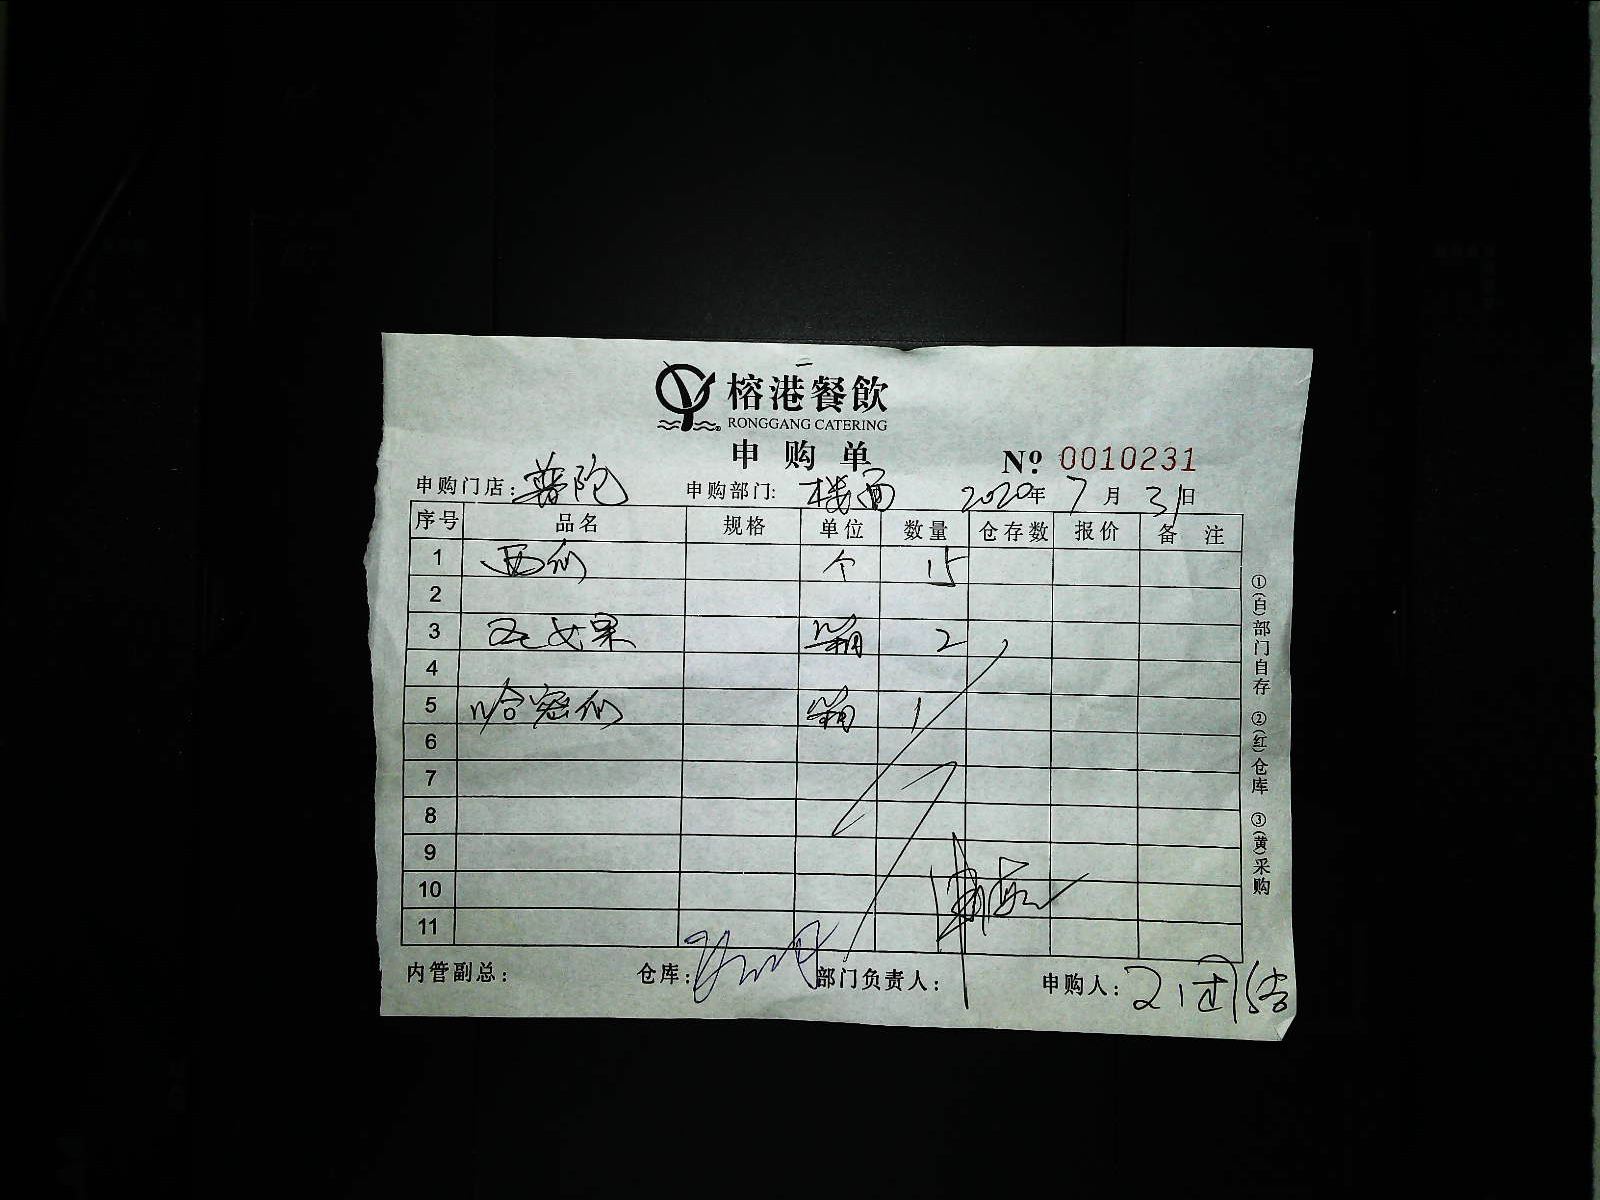 榕港餐飲
RONGGANG CATERING
申购单
№ 0010231
申购门店：普陀 申购部门：楼面 2020年 7月 31日
序号 品名 规格 单位 数量 仓存数 报价 备注
1 西瓜 个 15
2
3 圣女果 箱 2
4
5 哈密瓜 箱 1
6
7
8
9
10
11
内管副总： 仓库： 部门负责人： 申购人：
①(白)部门自存 ②(红)仓库 ③(黄)采购